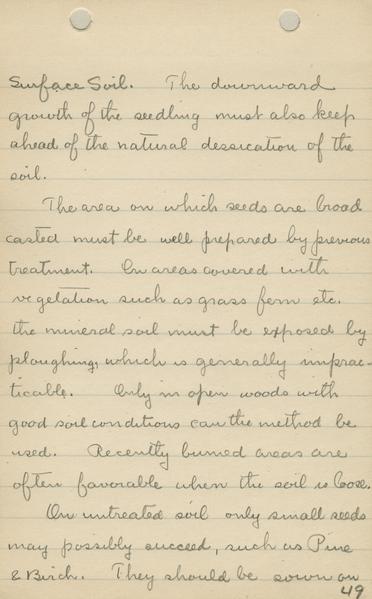 Surface Soil. The downward
growth of the seedling must also keep
ahead of the natural dessication of the
soil.
The area on which seeds are broad
casted must be well prepared by previous
treatment. On areas covered with
vegetation such as grass fern etc.
the mineral soil must be exposed by
ploughing, which is generally imprac-
ticable. Only in open woods with
good soil conditions can the method be
used. Recently burned areas are
often favorable when the soil is loose.
On untreated soil only small seeds
may possibly succeed, such as Pine
& Birch. They should be sown on
49